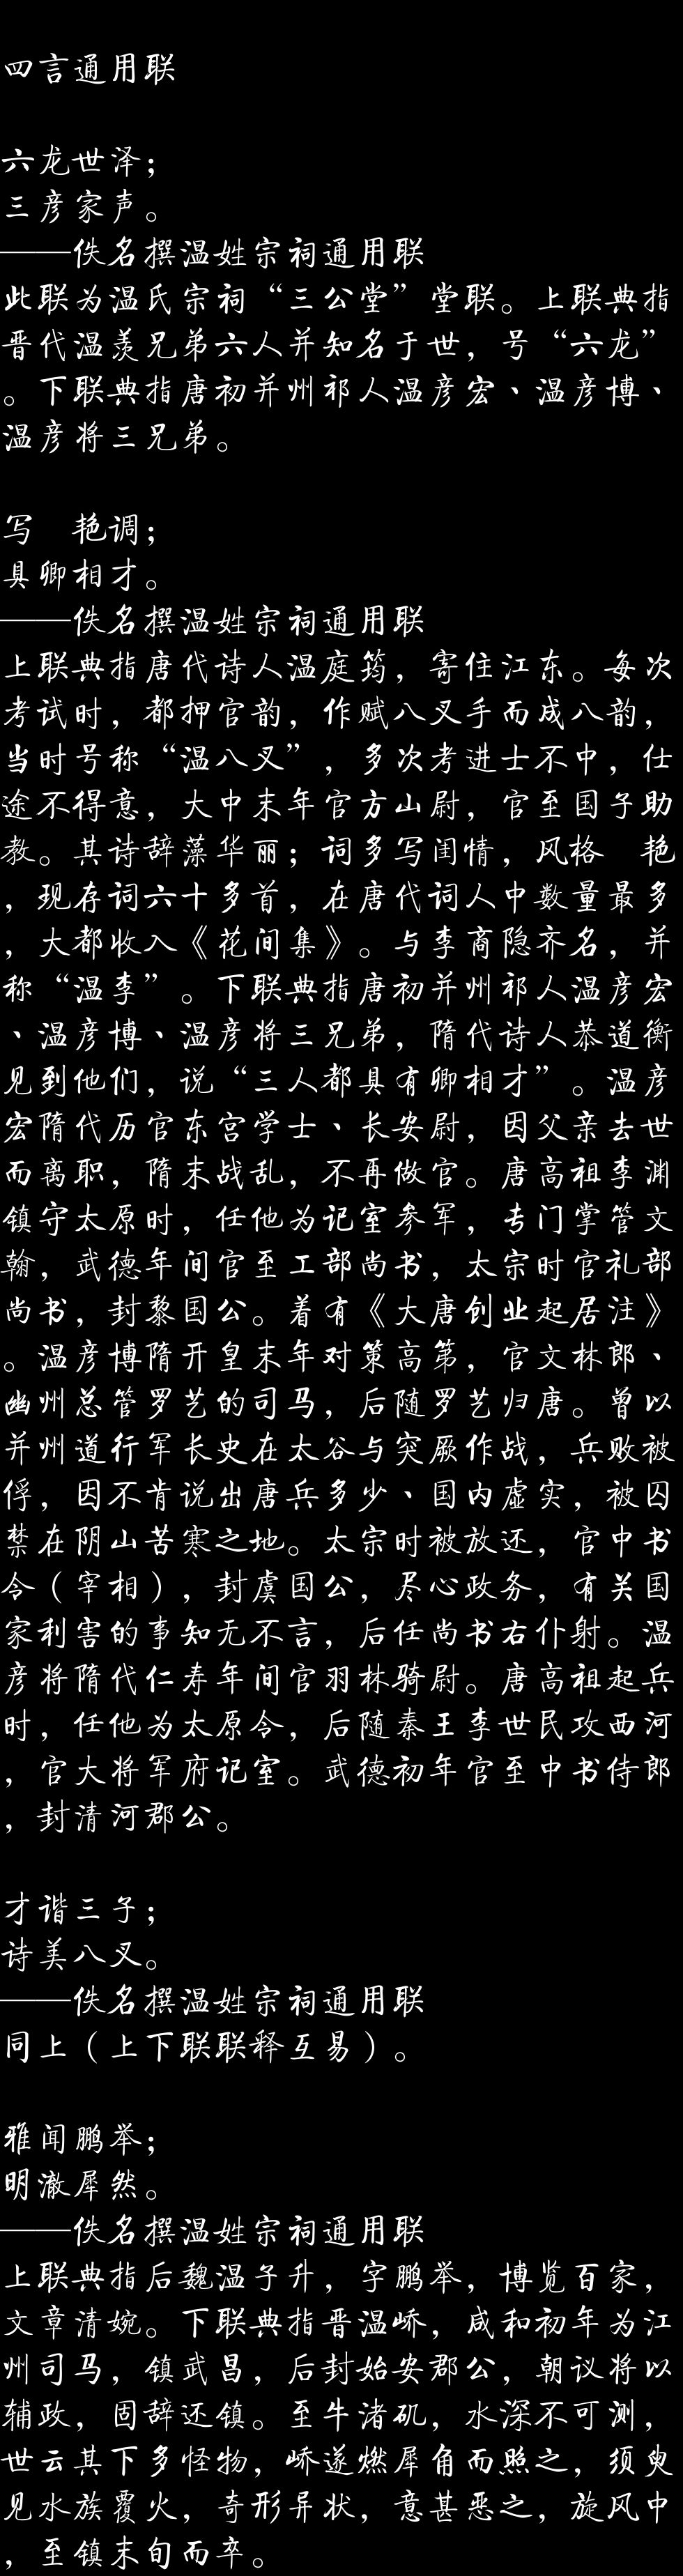 四言通用联
六龙世泽；
三彦家声。
——佚名撰温姓宗祠通用联
此联为温氏宗祠“三公堂”堂联。上联典指
晋代温羡兄弟六人并知名于世，号“六龙”
。下联典指唐初并州祁人温彦宏、温彦博、
温彦将三兄弟。
写　艳调；
具卿相才。
——佚名撰温姓宗祠通用联
上联典指唐代诗人温庭筠，寄住江东。每次
考试时，都押官韵，作赋八叉手而成八韵，
当时号称“温八叉”，多次考进士不中，仕
途不得意，大中末年官方山尉，官至国子助
教。其诗辞藻华丽；词多写闺情，风格　艳
，现存词六十多首，在唐代词人中数量最多
，大都收入《花间集》。与李商隐齐名，并
称“温李”。下联典指唐初并州祁人温彦宏
、温彦博、温彦将三兄弟，隋代诗人恭道衡
见到他们，说“三人都具有卿相才”。温彦
宏隋代历官东宫学士、长安尉，因父亲去世
而离职，隋末战乱，不再做官。唐高祖李渊
镇守太原时，任他为记室参军，专门掌管文
翰，武德年间官至工部尚书，太宗时官礼部
尚书，封黎国公。着有《大唐创业起居注》
。温彦博隋开皇末年对策高第，官文林郎、
幽州总管罗艺的司马，后随罗艺归唐。曾以
并州道行军长史在太谷与突厥作战，兵败被
俘，因不肯说出唐兵多少、国内虚实，被囚
禁在阴山苦寒之地。太宗时被放还，官中书
令（宰相），封虞国公，尽心政务，有关国
家利害的事知无不言，后任尚书右仆射。温
彦将隋代仁寿年间官羽林骑尉。唐高祖起兵
时，任他为太原令，后随秦王李世民攻西河
，官大将军府记室。武德初年官至中书侍郎
，封清河郡公。
才谐三子；
诗美八叉。
——佚名撰温姓宗祠通用联
同上（上下联联释互易）。
雅闻鹏举；
明澈犀然。
——佚名撰温姓宗祠通用联
上联典指后魏温子升，字鹏举，博览百家，
文章清婉。下联典指晋温峤，咸和初年为江
州司马，镇武昌，后封始安郡公，朝议将以
辅政，固辞还镇。至牛渚矶，水深不可测，
世云其下多怪物，峤遂燃犀角而照之，须臾
见水族覆火，奇形异状，意甚恶之，旋风中
，至镇末旬而卒。